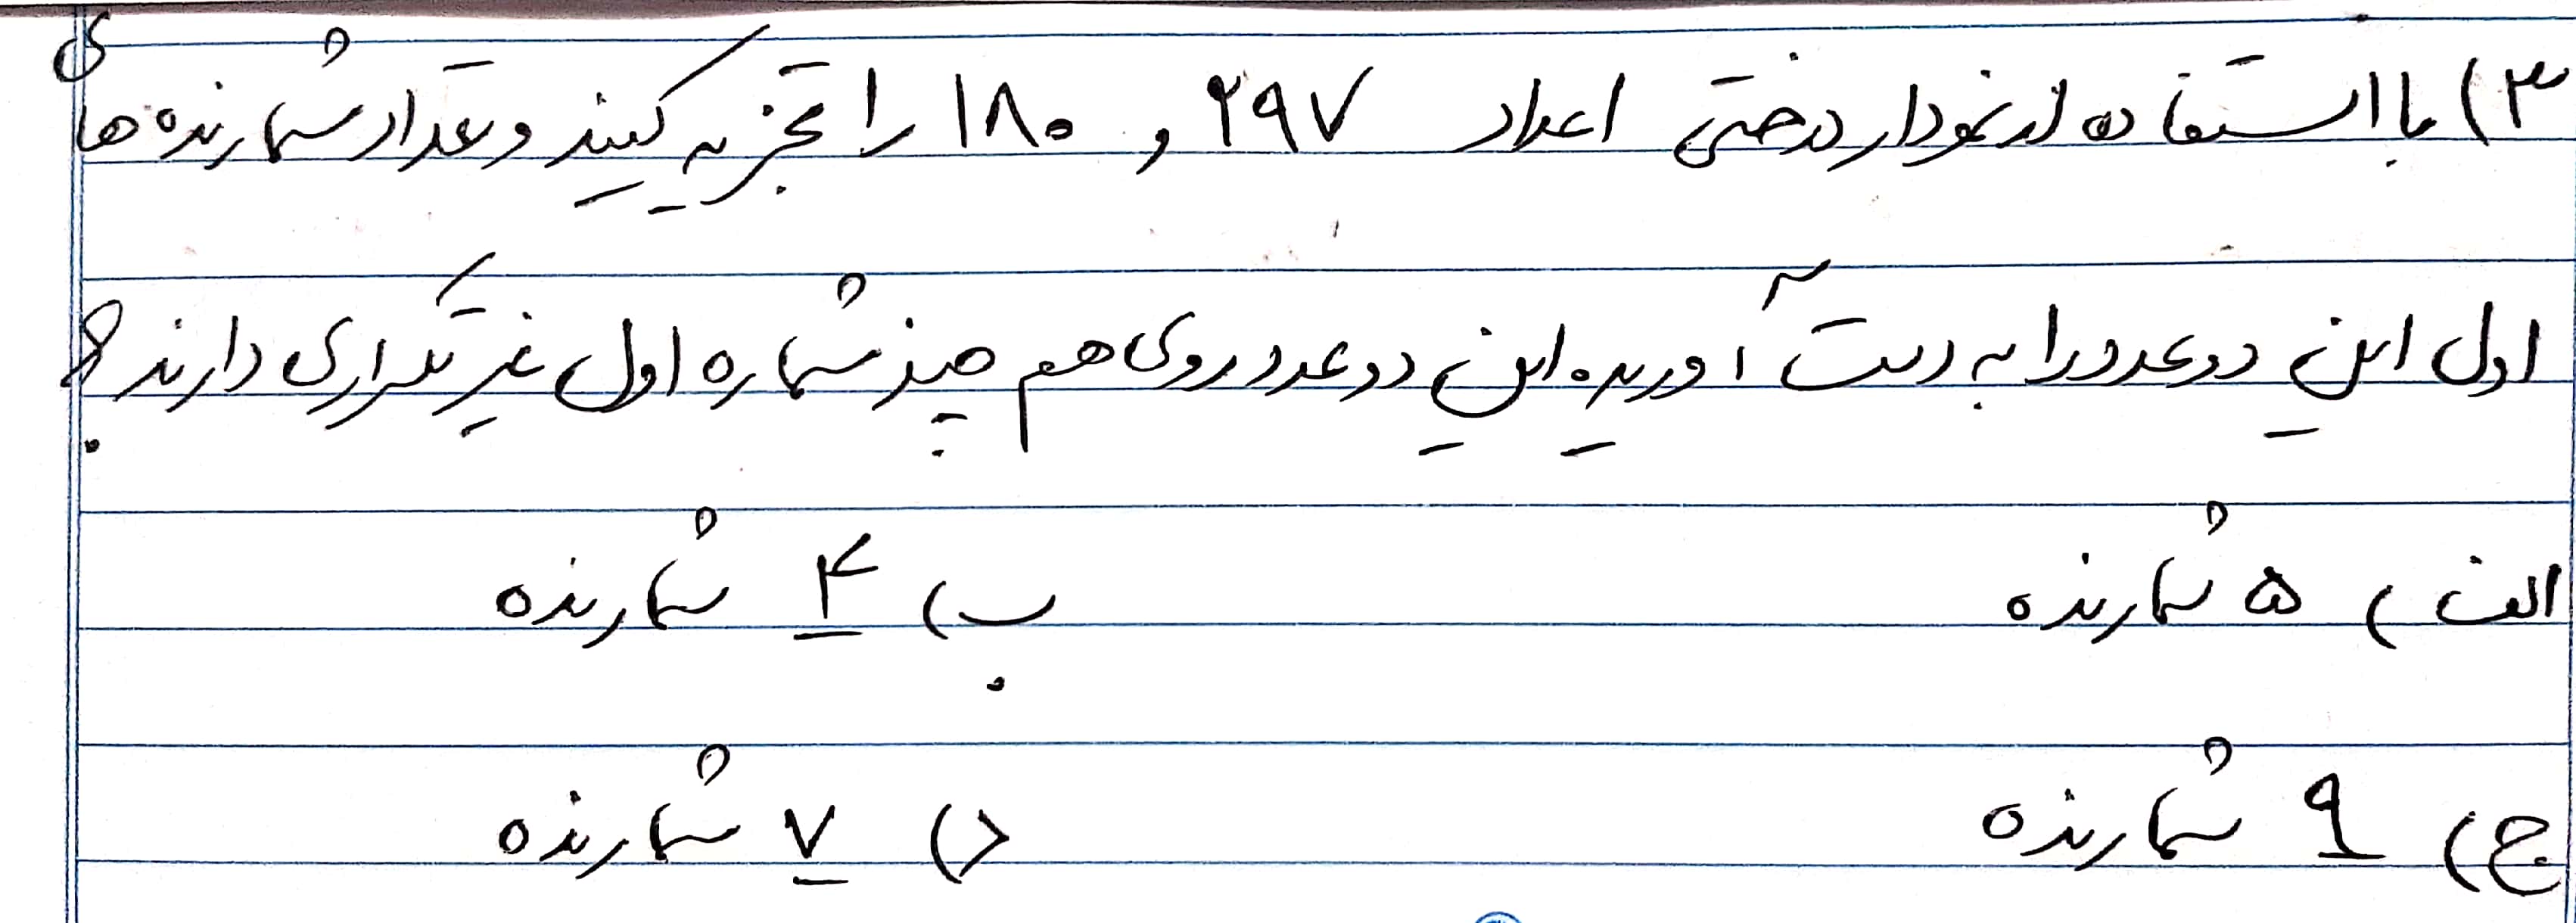 ۳) با استفاده از نمودار درختی اعداد ۲۹۷ و ۱۸۰ را تجزیه کنید و تعداد شمارنده های
اول این دو عدد را به دست آورید. این دو عدد روی هم چند شماره اول غیر تکراری دارند؟
الف) ۵ شمارنده ب) ۴ شمارنده
ج) ۹ شمارنده د) ۷ شمارنده